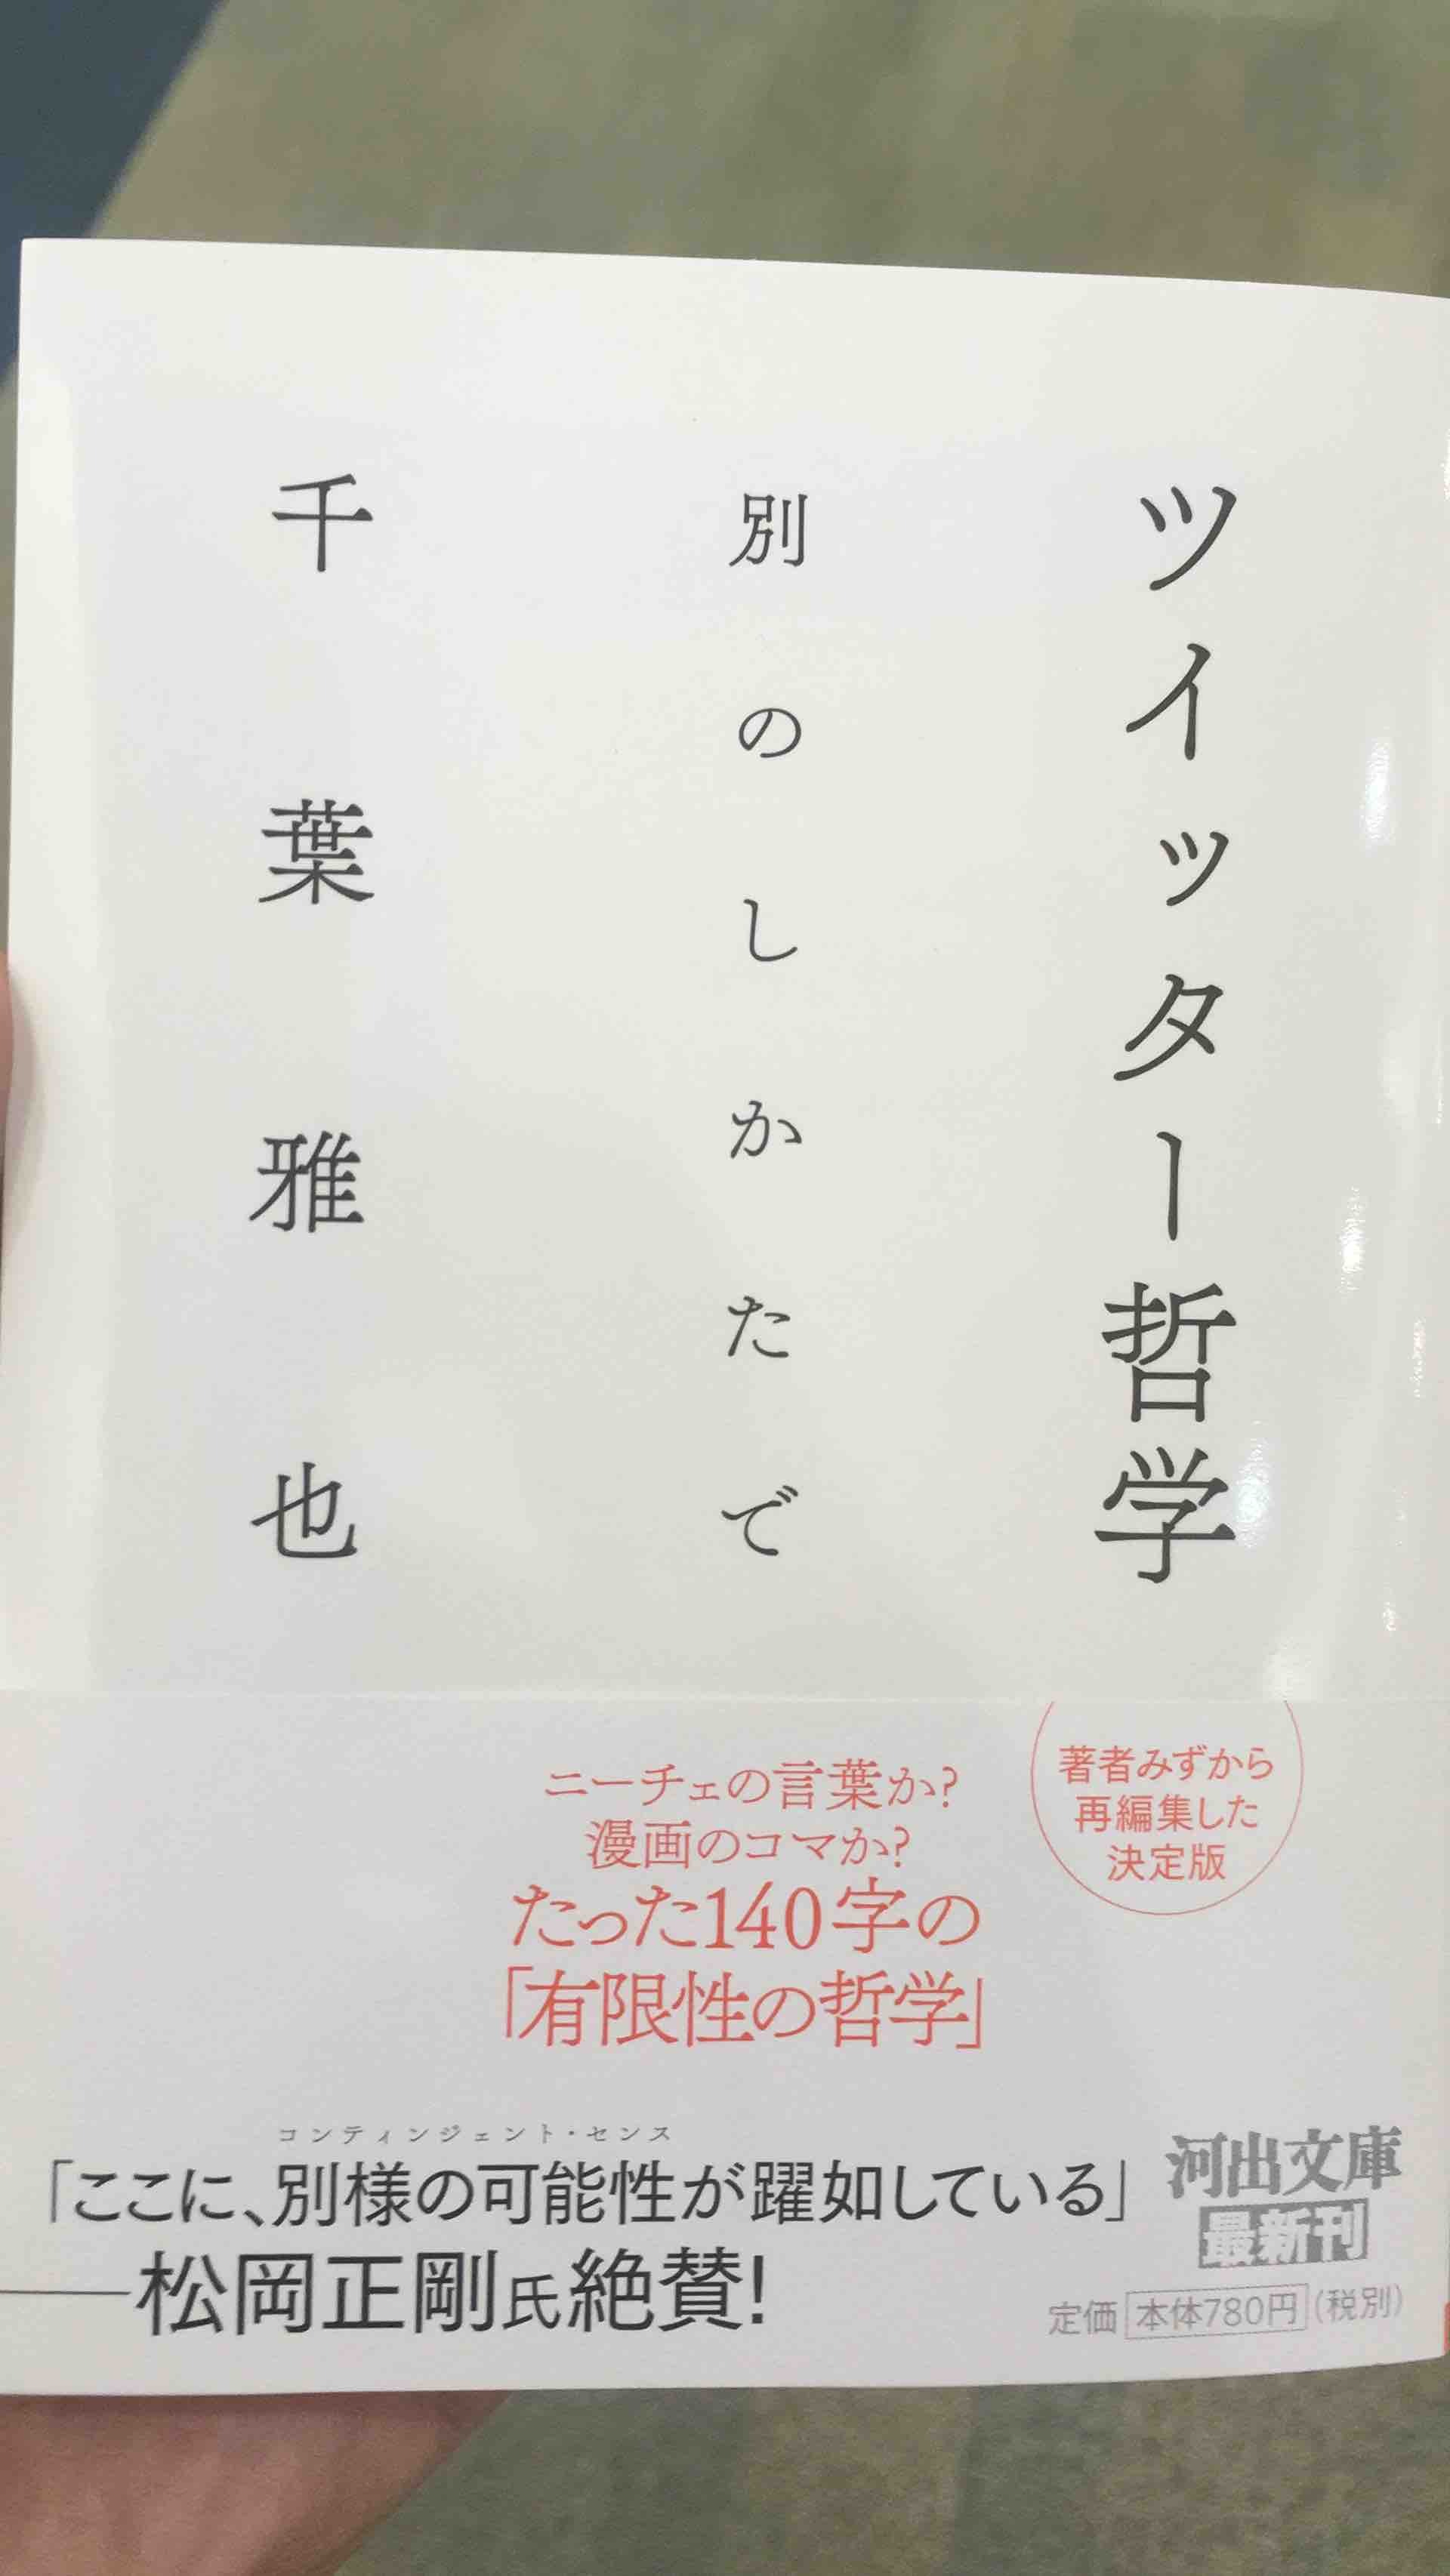 ツイッター哲学
別のしかたで
千葉雅也
著者みずから
再編集した
決定版
ニーチェの言葉か?
漫画のコマか?
たった140字の
「有限性の哲学」
コンティンジェント・センス
「ここに、別様の可能性が躍如している」
――松岡正剛氏絶賛!
河出文庫
最新刊
定価 本体780円(税別)